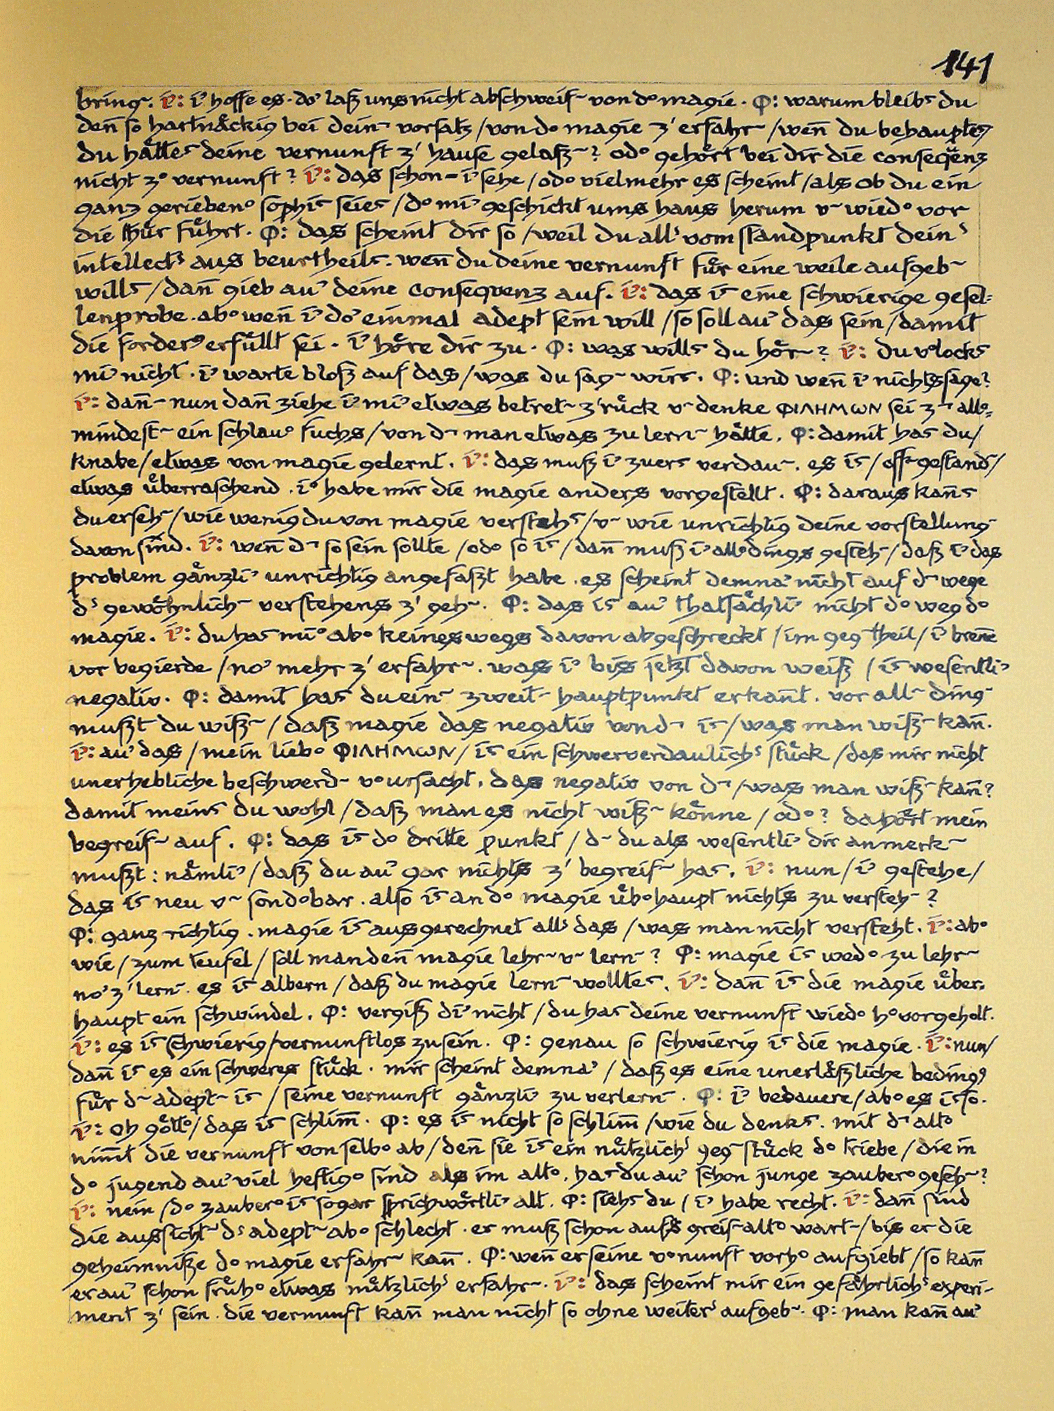 141
bring. i᷎: i᷎ hoffe es. do’ laß uns nicht abschweif~ von d° magie. Φ: warum bleibs du
deñ so hartnäckig bei dein~ vorsatz/von d° magie z’ erfahr~/weñ du behauptes/
du hättes deine vernunft z’ hause gelaß~? od° gehört bei dir die consequenz
nicht z° vernunft? i᷎: das schon – i᷎ sehe/od° vielmehr es scheint/als ob du ein
ganz gerieben° sophis seies/d° mi’ geschickt ums haus herum u~ wied° vor
die thür führt. Φ: das scheint dir so/weil du all’ vom standpunkt dein’
intellects aus beurtheils. weñ du deine vernunft für eine weile aufgeb~
wills/dañ gieb au’ deine consequenz auf. i᷎: das is eine schwierige gesel-
lenprobe. ab° weñ i᷎ do’ einmal adept sein will/so soll au’ das sein/damit
die forder⁹ erfüllt sei. i᷎ höre dir zu. Φ: was wills du hör~? i᷎: du v°locks
mi’ nicht. i᷎ warte bloß auf das/was du sag~ wirs. Φ: und weñ i᷎ nichts sage?
i᷎: dañ – nun dañ ziehe i᷎ mi’ etwas betret~ z’rück u~ denke ΦΙΛΗΜΩΝ sei z~ all°-
mindest~ ein schlau° fuchs/von d~ man etwas zu lern~ hätte. Φ: damit has du/
knabe/etwas von magie gelernt. i᷎: das muß i᷎ zuers verdau~. es is/off~ gestand~/
etwas überraschend. i᷎ habe mir die magie anders vorgestellt. Φ: daraus kañs
du erseh~/wie wenig du von magie verstehs/u~ wie unrichtig deine vorstellung~
davon sind. i᷎: weñ d~ so sein sollte/od° so is/dañ muß i᷎ all°dings gesteh~/daß i᷎ das
problem gänzli’ unrichtig angefaßt habe. es scheint demna’ nicht auf d~ wege
d’ gewöhnlich~ verstehens z’ geh~. Φ: das is au’ thatsächli’ nicht d° weg d°
magie. i᷎: du has mi’ ab° keineswegs davon abgeschreckt/im geg~theil/i᷎ breñe
vor begierde/no’ mehr z’ erfahr~. was i᷎ bis jetzt davon weiß/is wesentli’
negativ. Φ: damit has du ein~ zweit~ hauptpunkt erkañt. vor all~ ding~
mußt du wiß~/daß magie das negativ von d~ is/was man wiß~ kañ.
i᷎: au’ das/mein lieb° ΦΙΛΗΜΩΝ/is ein schwerverdaulich’ stück/das mir nicht
unerhebliche beschwerd~ v°ursacht. das negativ von d~/was man wiß~ kañ?
damit meins du wohl/daß man es nicht wiß~ könne/od°? da hört mein
begreif~ auf. Φ: das is d° dritte punkt/d~ du als wesentli’ dir anmerk~
mußt: nämli’/daß du au’ gar nichts z’ begreif~ has. i᷎: nun/i᷎ gestehe/
das is neu u~ sond°bar. also is an d° magie üb°haupt nichts zu versteh~?
Φ: ganz richtig. magie is ausgerechnet all’ das/was man nicht versteht. i᷎: ab°
wie/zum teufel/soll man deñ magie lehr~ u~ lern~? Φ: magie is wed° zu lehr~
no’ z’ lern~. es is albern/daß du magie lern~ wolltes. i᷎: dañ is die magie über-
haupt ein schwindel. Φ: vergiß di’ nicht/du has deine vernunft wied° h°vorgeholt.
i᷎: es is schwierig/vernunftlos zu sein. Φ: genau so schwierig is die magie. i᷎: nun/
dañ is es ein schweres stück. mir scheint demna’/daß es eine unerläßliche beding⁹
für d~ adept~ is/seine vernunft gänzli’ zu verlern~. Φ: i᷎ bedauere/ab° es is so.
i᷎: oh gött°/das is schlim̃. Φ: es is nicht so schlim̃/wie du denks. mit d~ alt°
nim̃t die vernunft von selb° ab/deñ sie is ein nützlich’ geg~stück d° triebe/die in
d° jugend au’ viel heftig° sind als im alt°. has du au’ schon junge zaub°° geseh~?
i᷎: nein/d° zaub°° is sogar sprichwörtli’ alt. Φ: siehs du/i᷎ habe recht. i᷎: dañ sind
die aussicht~ d’ adept~ ab° schlecht. er muß schon aufs greis~alt° wart~/bis er die
geheimniße d° magie erfahr~ kañ. Φ: weñ er seine v°nunft vorh° aufgiebt/so kañ
er au’ schon früh° etwas nützlich’ erfahr~. i᷎: das scheint mir ein gefährlich’ experi-
ment z’ sein. die vernunft kañ man nicht so ohne weiter’ aufgeb~. Φ: man kañ au’